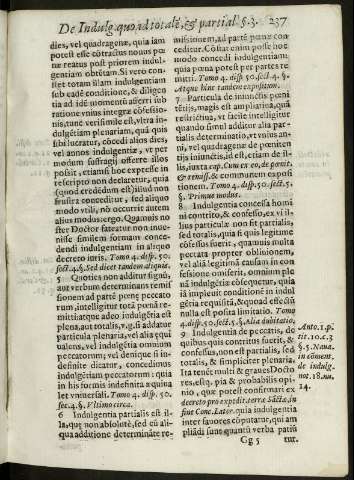 De Indulg. quo, id totalē, & partial. §. 3. 237
dies, vel quadragenæ, quia iam
potest esse cōtractus nouus pœ
næ reatus post priorem indul-
gentiam obtētam. Si vero con-
stet totam illam indulgentiam
sub eadē conditione, & diligen
tia ad idē momentū asserri sub
ratione vnius integræ cōfessio-
nis, tunc verisimile est, vltra in-
dulgētiam plenariam, quā quis
sibi lucratur, cōcedi alios dies,
vel annos indulgentiæ, vt per
modum suffragij offerre illos
possit, etiamsi hoc expresse in
rescripto non declaretur, quia
(quod credēdum est) illud non
frustra conceditur, sed aliquo
modo vtili, nō occurrit autem
alius modus.
ster Doctor fateatur non inue-
nisse similem formam conce-
dendi indulgentiam in aliquo
decreto iuris. Tomo 4. disp. 50.
sect. 4. §. Sed dicet tandem aliquis.
5 Quoties non additur signū,
aut verbum determinans remis
sionem ad partē pœnę peccato
rum, intelligitur totā pœnā re-
mitti: atque adeo indulgētia est
plena, aut totalis, v.g. si addatur
particula plenaria, vel alia ęqui
ualens, vel indulgētia omnium
peccatorum, vel denique si in-
definite dicatur, concedimus
indulgētiam peccatorum: quia
in his formis indefinita æquiua
let vniuersali. Tomo 4. disp. 50.
sec. 4. §. Vltimo circa.
6 Indulgentia partialis est il-
la, quę non absolutè, sed cū ali-
qua additione determināte re-
missionem, ad partē pœnæ con-
ceditur. Cōstat enim posse hoc
modo concedi indulgentiam:
quia pœna potest per partes re
mitti. Tomo 4. disp. 50. sect. 4. §.
Atque hinc tandem expositum.
7 Particula de iniunctis pœni
tētijs, magis est ampliatiua, quā
restrictiua, vt facile intelligitur
quando simul additur alia par-
tialis determinatio, vt vnius an-
ni, vel quadragenæ de pœnitēn
tijs iniunctis, id est, etiam de il-
lis, iuxta cap. Cum ex eo, de pœnit.
& remiss. & communem exposi
tionem. Tomo 4. disp. 50. sect. 5.
§. Primus modus.
8 Indulgentia concessa homi
ni contrito, & confesso, ex vi il-
lius particulæ non est partialis
sed totalis, quia si quis legitime
cōfessus fuerit, quamuis multa
peccata propter obliuionem,
vel aliā legitimā causam in con
fessione omiserit, omnium ple
nā indulgētiā cōsequetur, quia
iā impleuit conditionē in indul
gētia requisitā, & quoad effectū
nulla est posita limitatio. Tomo
4. disp. 50. sect. 5. §. Alia dubitatio,
9 Indulgentia de peccatis, de
quibus quis contritus fuerit, &
confessus, non est partialis, sed
totalis, & simpliciter plenaria.
Ita tenēt multi & graues Docto
res, estq. pia & probabilis opi
nio, quæ potest confirmari ex
decreto pro expedit. terræ Sāctæ, in
fine Conc. Later. quia indulgentia
inter fauores cōputatur, qui am
pliādi sunt quantū verba patiū
Anto. 1. p.
tit. 10. c. 3
§. 5. Naua.
in cōment.
de indulg.
no. 18. nu.
24.
Gg 5 tur.